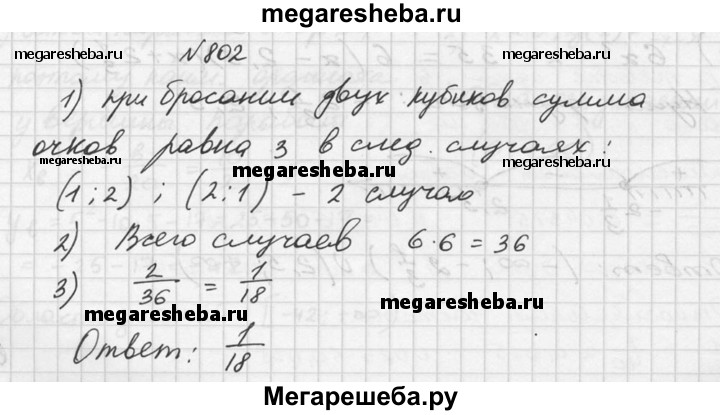 megaresheba.ru
megaresheba.ru
№802
megaresheba.ru
1) при бросании двух кубиков сумма
очков равна 3 в след. случаях:
megaresheba.ru
megaresheba.ru
megaresheba.ru
(1;2) ; (2;1) - 2 случаю
2) Всего случаев 6·6=36
3) 2/36 = 1/18
megaresheba.ru
megaresheba.ru
Ответ: 1/18
Мегарешеба.ру